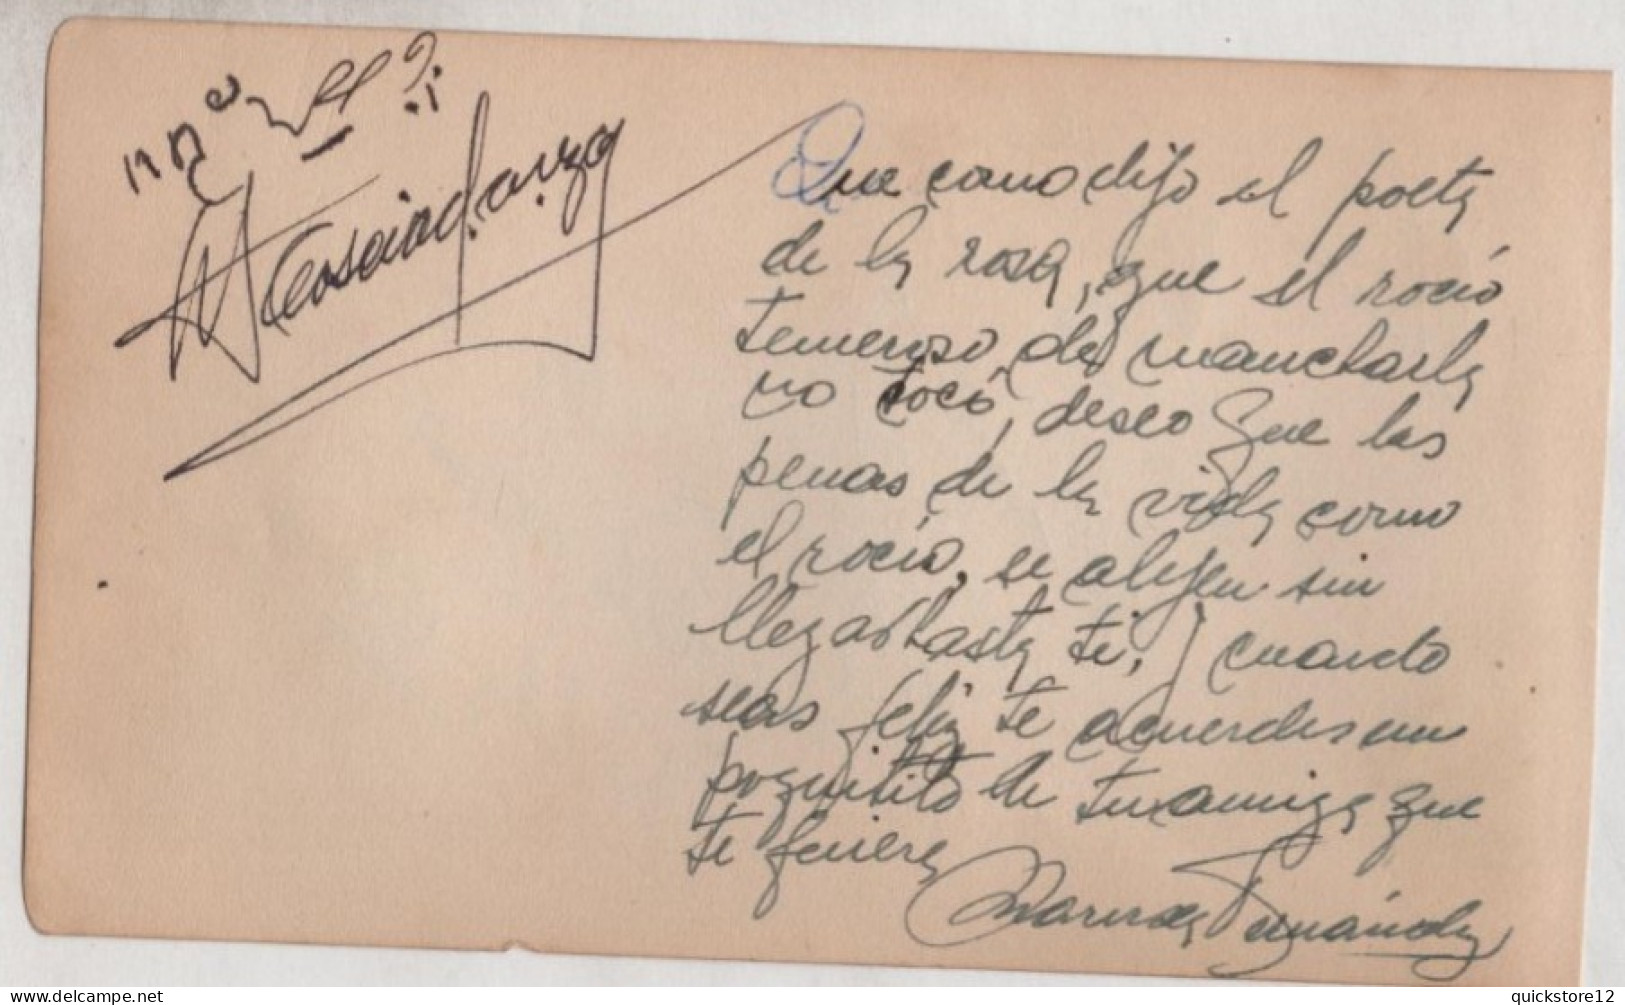 Que como dijo el poeta
de la rosa, que el rocío
temeroso de mancharla
no tocó, deseo que las
penas de la vida como
el rocío, se alejen sin
llegar hasta ti, y cuando
seas feliz te acuerdes un
poquitito de tu amiga que
te quiere
Fernández
quickstore12